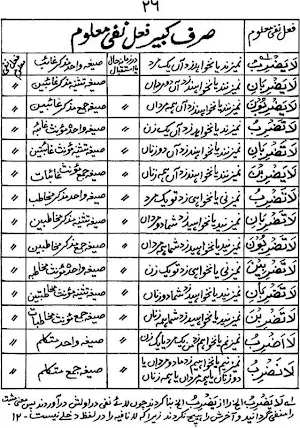 ۲۶
فعل نفی معلوم صرف کبیر فعل نفی معلوم
لَا یَضْرِبُ نمیزند یا نخواهد زد آں یک مرد در زمانہ حال یا استقبال صیغہ واحد مذکر غائب
لَا یَضْرِبَانِ نمیزنند یا نخواهند زد آں دو مرداں 〃 صیغہ تثنیہ مذکر غائبین 〃
لَا یَضْرِبُوْنَ نمیزنند یا نخواهند زد آں ہمہ مرداں 〃 صیغہ جمع مذکر غائبین 〃
لَا تَضْرِبُ نمیزند یا نخواهد زد آں یک زن 〃 صیغہ واحد مونث غائبہ 〃
لَا تَضْرِبَانِ نمیزنند یا نخواهند زد آں دو زناں 〃 صیغہ تثنیہ مونث غائبتین 〃
لَا یَضْرِبْنَ نمیزنند یا نخواهند زد آں ہمہ زناں 〃 صیغہ جمع مونث غائبات 〃
لَا تَضْرِبُ نمیزنی یا نخواهی زد تو یک مرد 〃 صیغہ واحد مذکر مخاطب 〃
لَا تَضْرِبَانِ نمیزنید یا نخواهید زد شما دو مرداں 〃 صیغہ تثنیہ مذکر مخاطبین 〃
لَا تَضْرِبُوْنَ نمیزنید یا نخواهید زد شما ہمہ مرداں 〃 صیغہ جمع مذکر مخاطبین 〃
لَا تَضْرِبِیْنَ نمیزنی یا نخواهی زد تو یک زن 〃 صیغہ واحد مونث مخاطبہ 〃
لَا تَضْرِبَانِ نمیزنید یا نخواهید زد شما دو زناں 〃 صیغہ تثنیہ مونث مخاطبتین 〃
لَا تَضْرِبْنَ نمیزنید یا نخواهید زد شما ہمہ زناں 〃 صیغہ جمع مونث مخاطبات 〃
لَا اَضْرِبُ نمیزنم یا نخواهم زد من یک مرد یا یک زن 〃 صیغہ واحد متکلم 〃
لَا نَضْرِبُ نمیزنیم یا نخواهیم زد ما دو مرداں یا دو زناں یا ہمہ مرداں یا ہمہ زناں 〃 صیغہ جمع متکلم 〃
لَا یَضْرِبُ الخ را از یَضْرِبُ الخ بنا کردند چوں لائے نفی در اولش در آوردند پس معنی مثبت
را منفی گردانید و آخرش را ہیچ نکردند زیرا کہ لا نافیہ را در لفظ دخلے نیست ۱۲